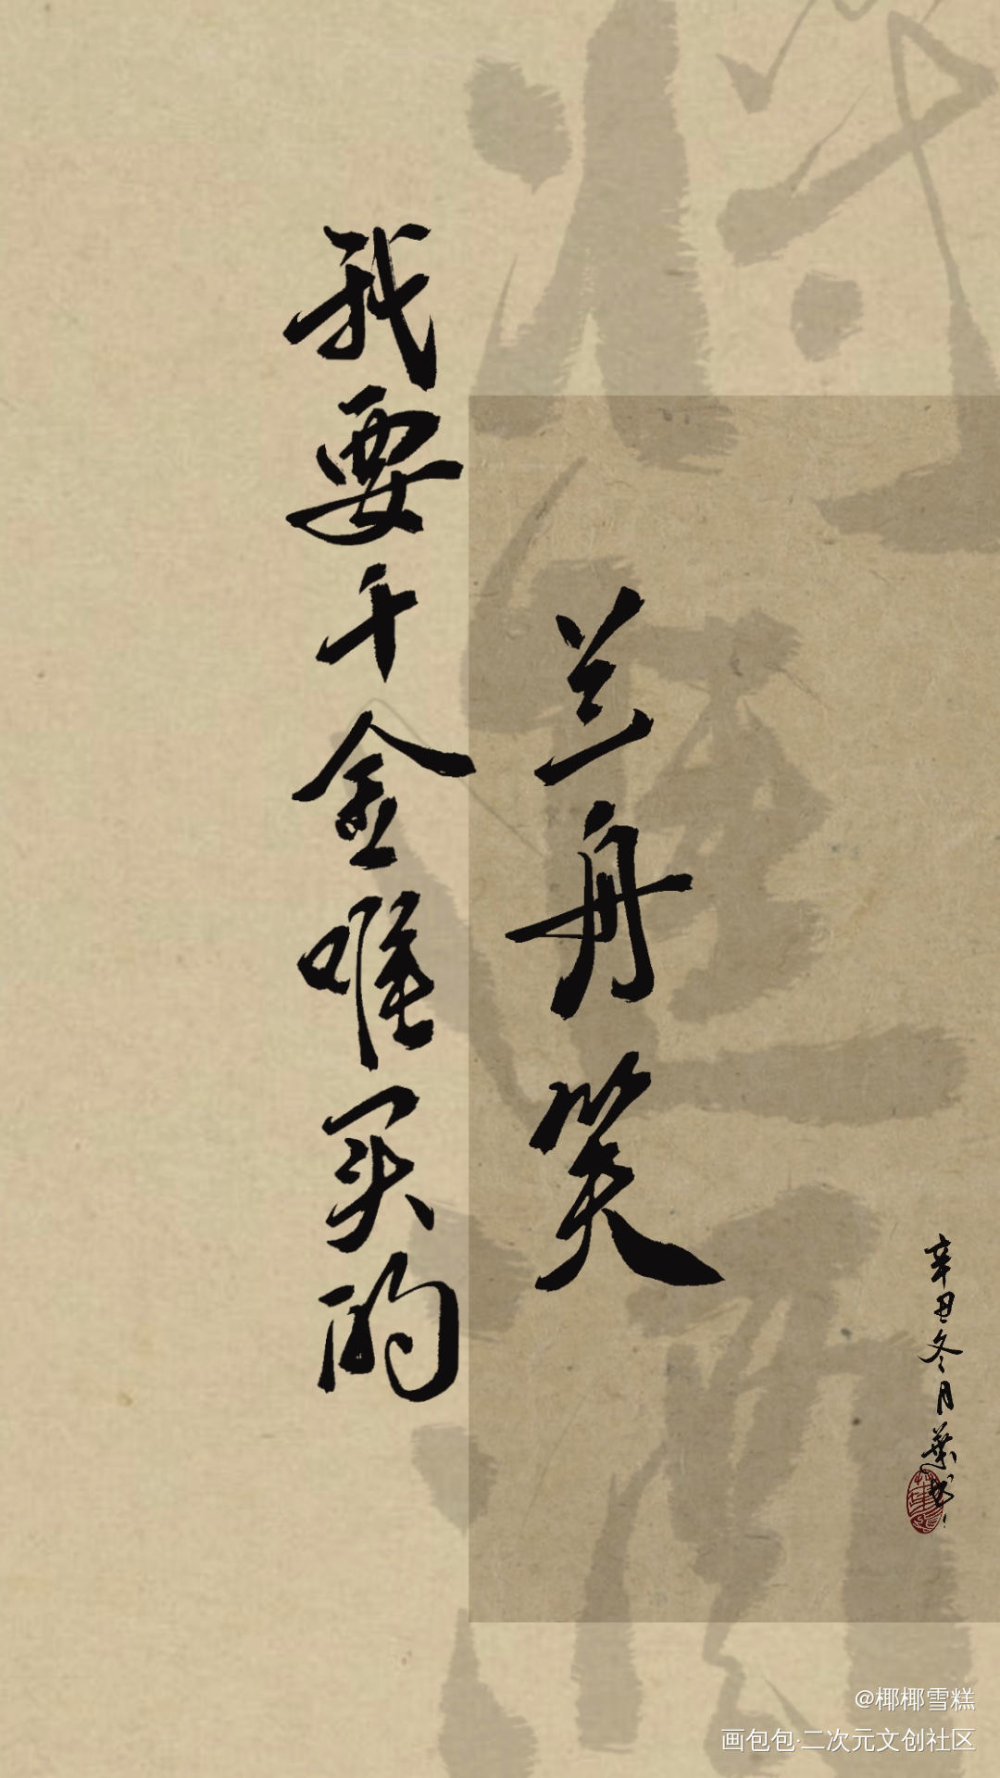 我要千金难买的
兰舟笑
将進酒
辛丑冬月葉书
@椰椰雪糕
画包包·二次元文创社区